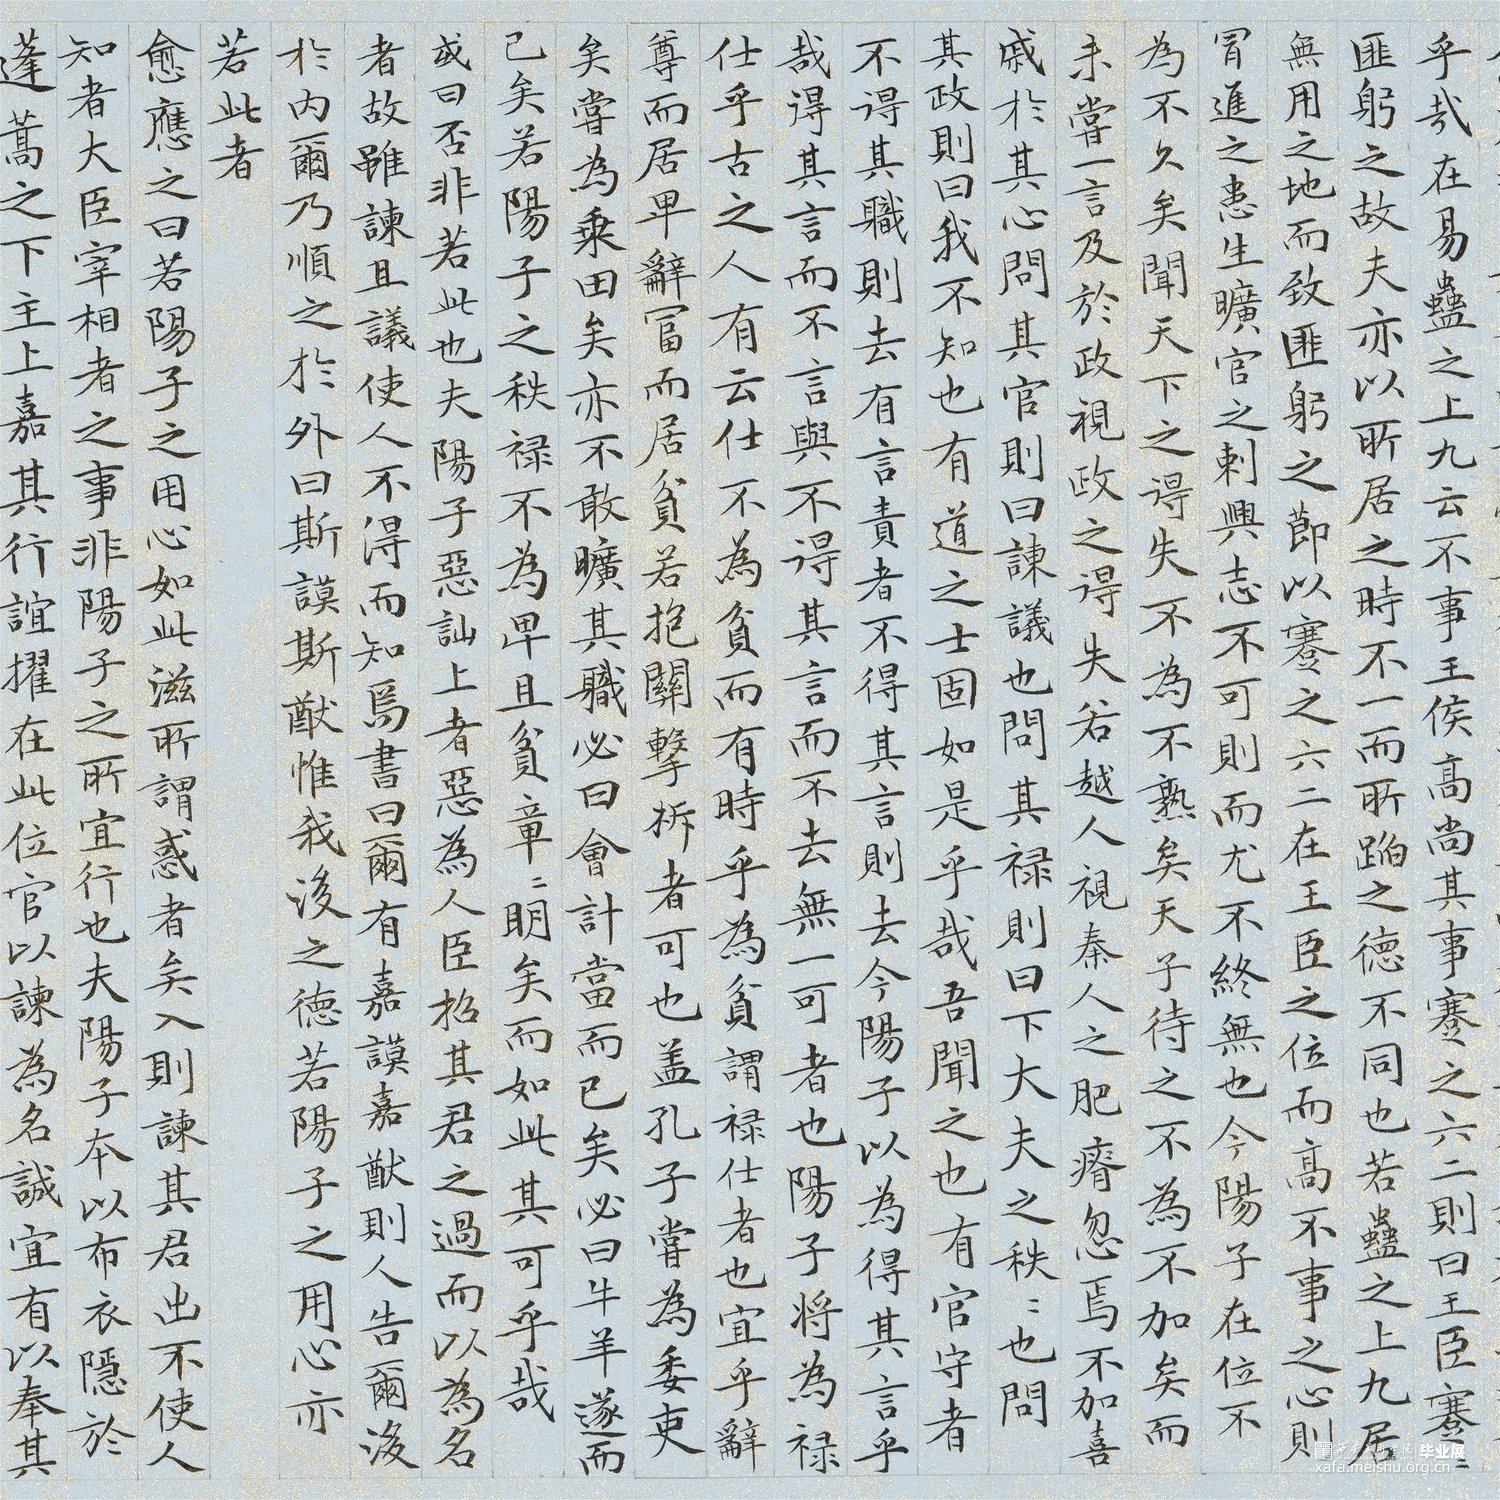 乎哉在易蠱之上九云不事王侯高尚其事蹇之六二則曰王臣蹇〻
匪躬之故夫亦以所居之時不一而所蹈之德不同也若蠱之上九居
無用之地而致匪躬之節以蹇之六二在王臣之位而高不事之心則
冒進之患生曠官之刺興志不可則而尤不終無也今陽子在位不
為不久矣聞天下之得失不為不熟矣天子待之不為不加矣而
未嘗一言及於政視政之得失若越人視秦人之肥瘠忽焉不加喜
戚於其心問其官則曰諫議也問其祿則曰下大夫之秩〻也問
其政則曰我不知也有道之士固如是乎哉吾聞之也有官守者
不得其職則去有言責者不得其言則去今陽子以為得其言乎
哉得其言而不言與不得其言而不去無一可者也陽子將為祿
仕乎古之人有云仕不為貧而有時乎為貧謂祿仕者也宜乎辭
尊而居卑辭富而居貧若抱關擊柝者可也盖孔子嘗為委吏
矣嘗為乘田矣亦不敢曠其職必曰會計當而已矣必曰牛羊遂而
已矣若陽子之秩祿不為卑且貧章〻明矣而如此其可乎哉
或曰否非若此也夫陽子惡訕上者惡為人臣招其君之過而以為名
者故雖諫且議使人不得而知焉書曰爾有嘉謨嘉猷則人告爾後
於內爾乃順之於外曰斯謨斯猷惟我後之德若陽子之用心亦
若此者
愈應之曰若陽子之用心如此滋所謂惑者矣入則諫其君出不使人
知者大臣宰相者之事非陽子之所宜行也夫陽子本以布衣隱於
蓬蒿之下主上嘉其行誼擢在此位官以諫為名誠宜有以奉其
西安美术学院 毕业展
xafa.meishu.org.cn